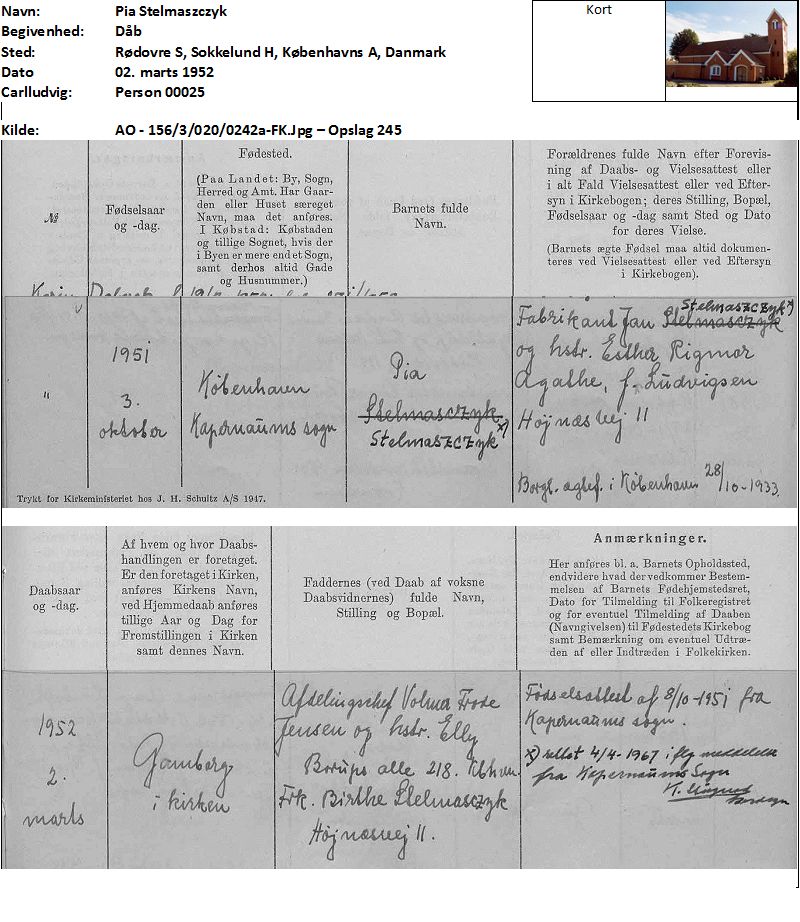 Navn: Pia Stelmaszczyk
Begivenhed: Dåb
Sted: Rødovre S, Sokkelund H, Københavns A, Danmark
Dato 02. marts 1952
Carlludvig: Person 00025
Kilde: AO - 156/3/020/0242a-FK.Jpg – Opslag 245
Kort
№
Fødselsaar
og -dag.
Fødested.
(Paa Landet: By, Sogn,
Herred og Amt. Har Gaar-
den eller Huset særeget
Navn, maa det anføres.
I Købstad: Købstaden
og tillige Sognet, hvis der
i Byen er mere end et Sogn,
samt derhos altid Gade
og Husnummer.)
Barnets fulde
Navn.
Forældrenes fulde Navn efter Forevis-
ning af Daabs- og Vielsesattest eller
i alt Fald Vielsesattest eller ved Efter-
syn i Kirkebogen; deres Stilling, Bopæl,
Fødselsaar og -dag samt Sted og Dato
for deres Vielse.
(Barnets ægte Fødsel maa altid dokumen-
teres ved Vielsesattest eller ved Eftersyn
i Kirkebogen).
"
1951
3.
oktober
København
Kapernaums sogn
Pia
Stelmasczyk
Stelmaszczyk x)
Stelmaszczyk x)
Fabrikant Jan Stelmasczyk
og hstr. Esther Rigmor
Agathe, f. Ludvigsen
Højnæsvej 11
Borgl. agtef. i København 28/10-1933.
Trykt for Kirkeministeriet hos J. H. Schultz A/S 1947.
Daabsaar
og -dag.
Af hvem og hvor Daabs-
handlingen er foretaget.
Er den foretaget i Kirken,
anføres Kirkens Navn,
ved Hjemmedaab anføres
tillige Aar og Dag for
Fremstillingen i Kirken
samt dennes Navn.
Faddernes (ved Daab af voksne
Daabsvidnernes) fulde Navn,
Stilling og Bopæl.
Anmærkninger.
Her anføres bl. a. Barnets Opholdssted,
endvidere hvad der vedkommer Bestem-
melsen af Barnets Fødehjemstedsret,
Dato for Tilmelding til Folkeregistret
og for eventuel Tilmelding af Daaben
(Navngivelsen) til Fødestedets Kirkebog
samt Bemærkning om eventuel Udtræ-
den af eller Indtræden i Folkekirken.
1952
2.
marts
Gamborg
i kirken
Afdelingschef Volmer Frode
Jensen og hstr. Elly
Borups alle 218. Kbhvn.
Frk. Birthe Stelmasczyk
Højnæsvej 11.
Fødselsattest af 8/10-1951 fra
Kapernaums sogn.
x) rettet 4/4-1967 iflg meddelelse
fra Kapernaums Sogn